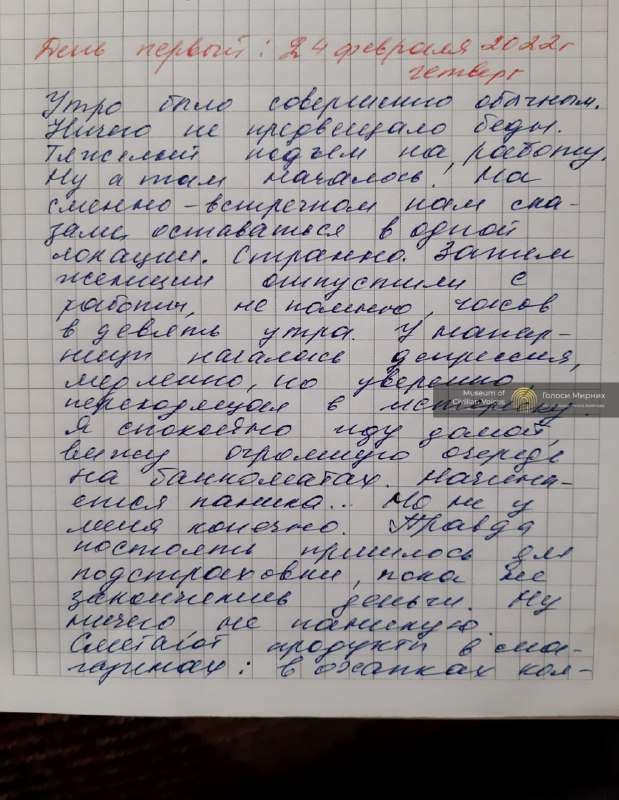 День первый: 24 февраля 2022г
четверг
Утро было совершенно обычным.
Ничего не предвещало беды.
Тяжелый подъем на работу.
Ну а там началось! На
сменно-встречном нам ска-
зали оставаться в одной
локации. Странно. Затем
женщин отпустили с
работы, не помню, часов
в девять утра. У напар-
ницы началась депрессия,
медленно, но уверенно
переходящая в истерику.
Я спокойно иду домой,
вижу огромную очередь
на банкоматах. Начина-
ется паника... Но не у
меня конечно. Правда
постоять пришлось для
подстраховки, пока не
закончились деньги. Ну
ничего не паникую.
Сметают продукты в ма-
газинах: в охапках кол-
Museum of
Civilian Voices
Голоси Мирних